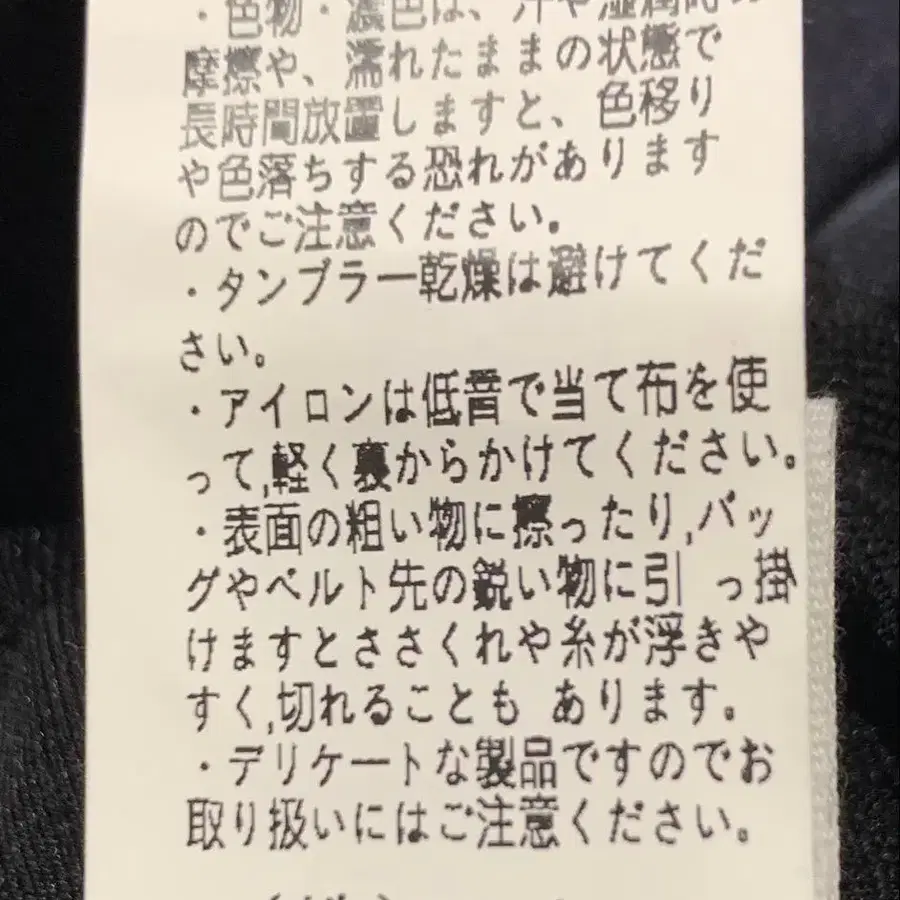 ・色物・濃色は、汗や湿潤時の
摩擦や、濡れたままの状態で
長時間放置しますと、色移り
や色落ちする恐れがあります
のでご注意ください。
・タンブラー乾燥は避けてくだ
さい。
・アイロンは低音で当て布を使
って,軽く裏からかけてください。
・表面の粗い物に擦ったり,バッ
グやベルト先の鋭い物に引 っ掛
けますとささくれや糸が浮きや
すく,切れることも あります。
・デリケートな製品ですのでお
取り扱いにはご注意ください。